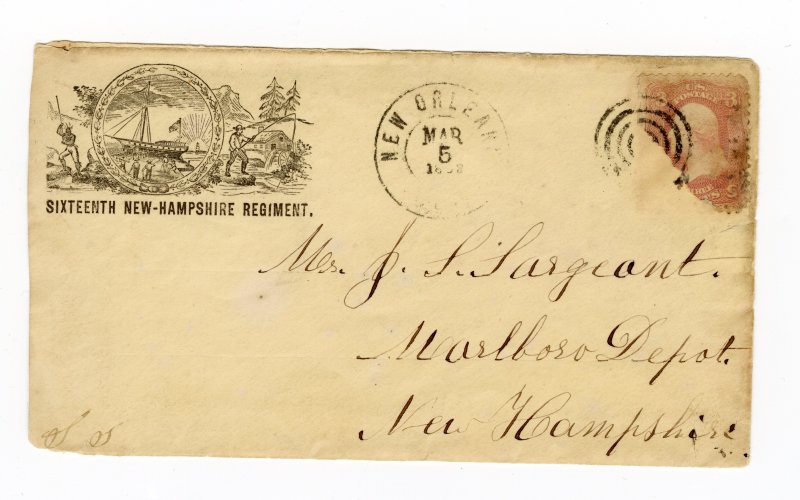 SIXTEENTH NEW-HAMPSHIRE REGIMENT.
NEW ORLEAN
MAR
5
Mr. J. S. Sargeant.
Marlboro Depot.
New Hampshire.